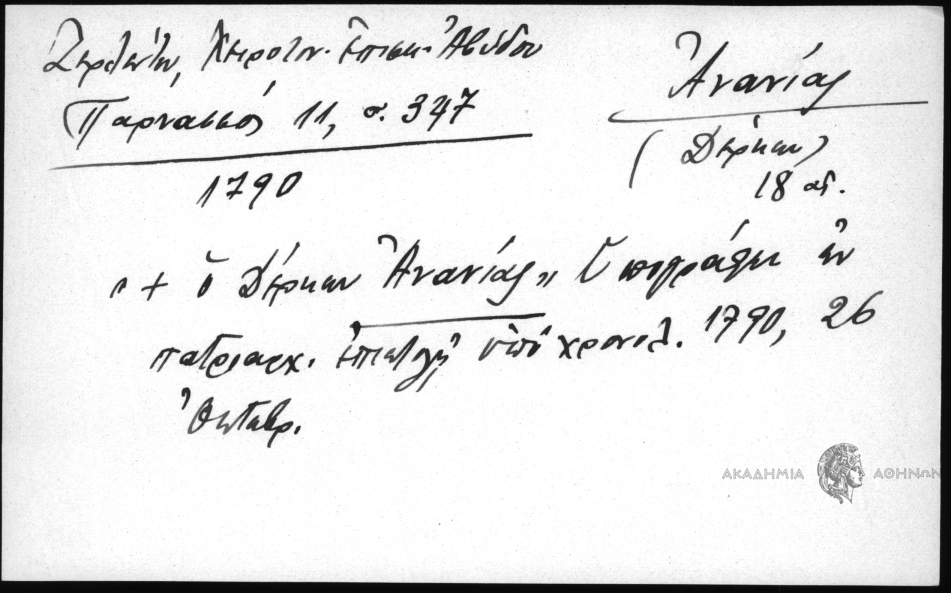 Ζερλέντου, Χειροτον. Ἐπισκ. Ἀβύδου
Παρνασσός 11, σ. 347
1790
Ἀνανίας
(Δέρκων)
18 αἰ.
"+ ὁ Δέρκων Ἀνανίας" ὑπογράφει ἐν
πατριαρχ. ἐπιστολῇ ὑπὸ χρονολ. 1790, 26
Ὀκτωβρ.
ΑΚΑΔΗΜΙΑ ΑΘΗΝΩΝ